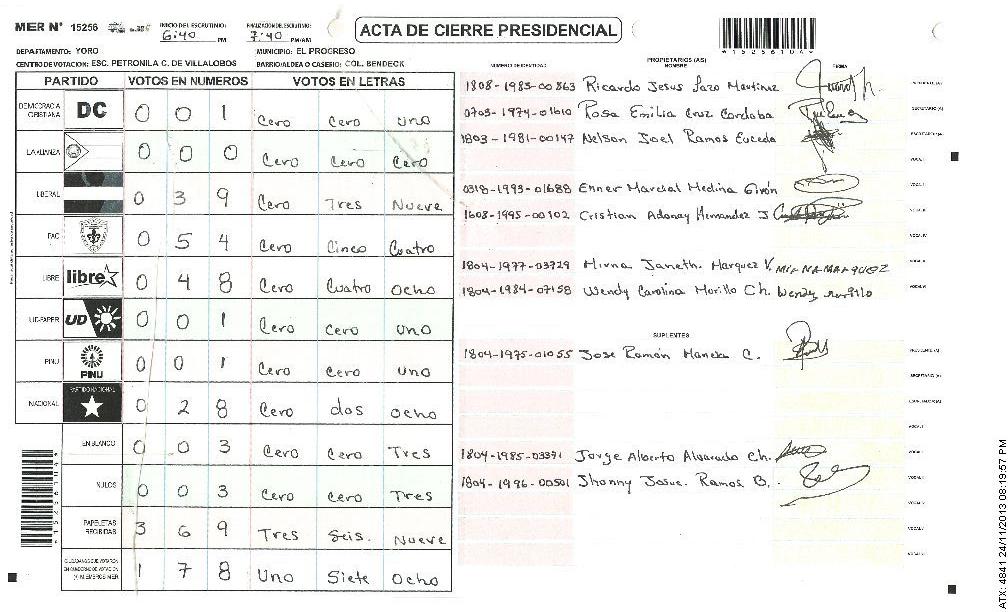 MER N° 15256
INICIO DEL ESCRUTINIO: 6:40 PM
FINALIZACION DEL ESCRUTINIO: 7:40 PM/AM
ACTA DE CIERRE PRESIDENCIAL
DEPARTAMENTO: YORO
MUNICIPIO: EL PROGRESO
CENTRO DE VOTACION: ESC. PETRONILA C. DE VILLALOBOS
BARRIO/ALDEA O CASERIO: COL. BENDECK
PARTIDO VOTOS EN NUMEROS VOTOS EN LETRAS
DEMOCRACIA CRISTIANA DC 0 0 1 Cero Cero uno
LA ALIANZA 0 0 0 Cero Cero Cero
LIBERAL 0 3 9 Cero Tres Nueve
PAC 0 5 4 Cero Cinco Cuatro
LIBRE libre 0 4 8 Cero Cuatro ocho
UD-FAPER UD 0 0 1 Cero Cero uno
PINU PINU 0 0 1 Cero Cero uno
NACIONAL PARTIDO NACIONAL 0 2 8 Cero dos ocho
EN BLANCO 0 0 3 Cero Cero Tres
NULOS 0 0 3 Cero Cero Tres
PAPELETAS RECIBIDAS 3 6 9 Tres Seis. Nueve
1 7 8 Uno Siete Ocho
15256104
NUMERO DE IDENTIDAD
PROPIETARIOS (AS)
NOMBRE
FIRMA
1808-1983-00863 Ricardo Jesus Lazo Martinez
0703-1974-01610 Rosa Emilia Cruz Cordoba
1803-1981-00147 Nelson Joel Ramos Euceda
0318-1993-01688 Enner Marcial Medina Girón
1608-1995-00102 Cristian Adonay Hernandez J
1804-1977-03729 Mirna Janeth. Marquez V. MIRNA MARQUEZ
1804-1984-07158 Wendy Carolina Morillo Ch. Wendy Morillo
SUPLENTES
1804-1975-01055 Jose Ramón C.
1804-1985-03371 Jorge Alberto Alvarado Ch.
1804-1996-00501 Jhonny Josue. Ramos B.
ATX: 4841 24/11/2013 08:19:57 PM